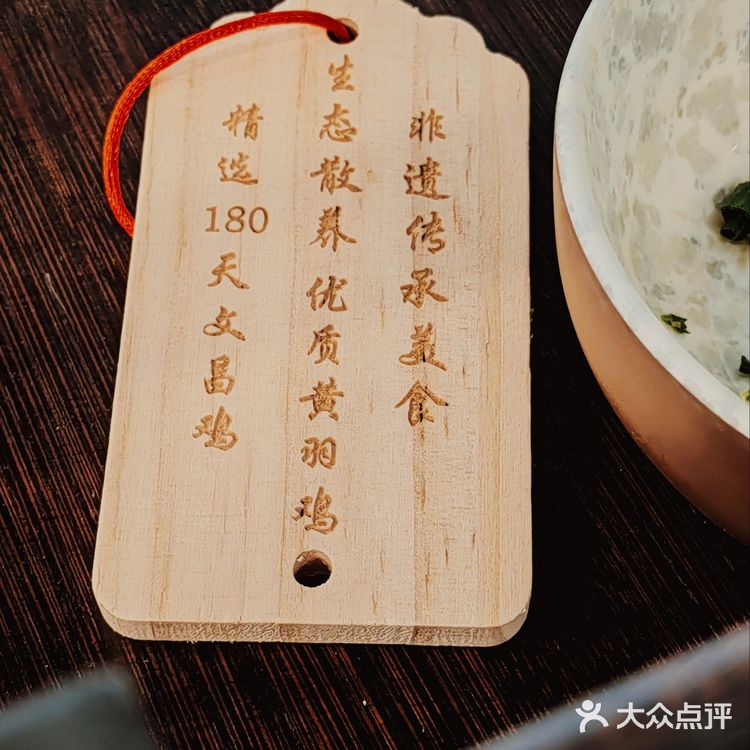 非遗传承美食
生态散养优质黄羽鸡
精选180天文昌鸡
大众点评